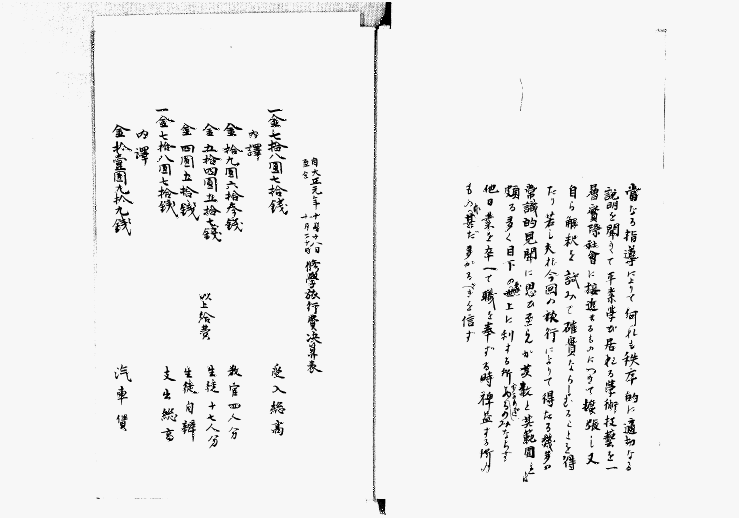 當なる指導によりて何れも秩序的に適切なる
説明を聞きて平素學び居れる學術技藝を一
層實際社會に接近せるものにつきて擴張し又
自ら解釈を試みて確實ならしむることを得
たり若し夫れ今回の旅行によりて得たる幾多の
常識的見聞に思ひ至らんか其數と其範圍とは
頗る多く目下の途上に利する所あるのみならず
他日業を卒へて職を奉ずる時裨益する所の
もの甚だ多かるべきを信ず
自大正元年十月十八日
至仝 十月二十日 修學旅行費决算表
一金七拾八圓七拾錢 受入総高
内譯
金拾九圓六拾参錢 教官四人分
金五拾四圓五拾七錢 生徒十七人分
以上給費
金四圓五拾錢 生徒自辨
一金七拾八圓七拾錢 支出総高
内譯
金拾壹圓九拾九錢 汽車賃